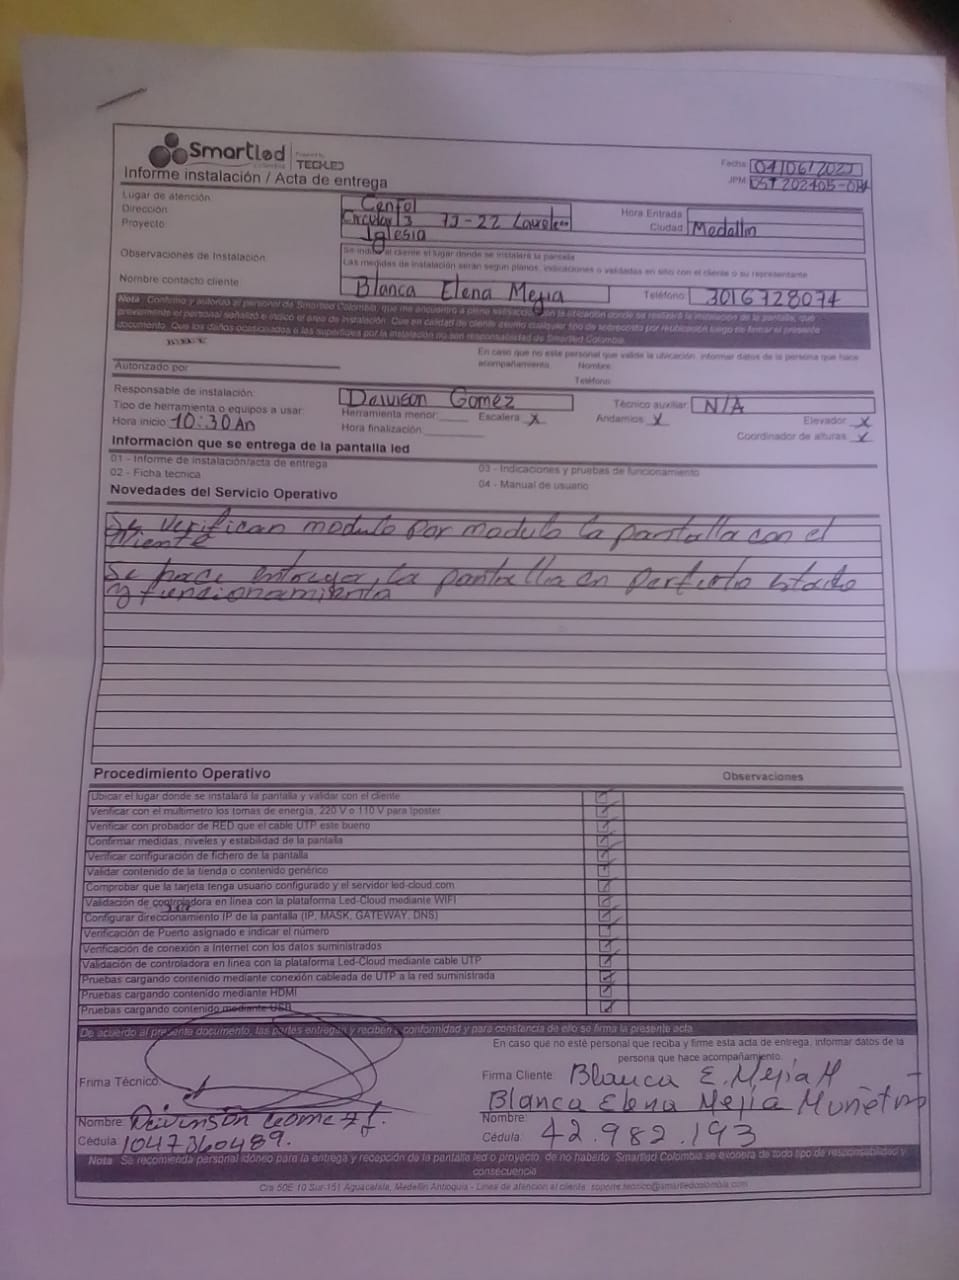 Smartled
Powered by
TECHLED
Informe instalación / Acta de entrega
Fecha 04/06/2025
JPM
Lugar de atención Cenfol
Dirección Circular 3 73-22 Laureles
Proyecto Iglesia
Hora Entrada
Ciudad Medellin
Observaciones de Instalación
Se indica al cliente el lugar donde se instalará la pantalla
Las medidas de instalación serán segun planos, indicaciones o validadas en sitio con el cliente o su representante
Nombre contacto cliente Blanca Elena Mejia Teléfono 3016728074
Nota: Confirmo y autorizo al personal de Smartled Colombia, que me encuentro a plena satisfacción con la ubicación donde se realizará la instalación de la pantalla, que
previamente el personal señalizó e indicó el area de instalación. Que en calidad de cliente asumo cualquier tipo de sobrecosto por reubicación luego de firmar el presente
documento. Que los daños ocasionados a las superficies por la instalación no son responsabilidad de Smartled Colombia.
En caso que no este personal que valide la ubicación, informar datos de la persona que hace
acompañamiento. Nombre:
Autorizado por
Teléfono:
Responsable de instalación: Daivison Gomez Técnico auxiliar N/A
Tipo de herramienta o equipos a usar: Herramienta menor: Escalera X Andamios X Elevador X
Hora inicio 10:30 Am Hora finalización: Coordinador de alturas X
Información que se entrega de la pantalla led
01 - Informe de instalación/acta de entrega
02 - Ficha tecnica
03 - Indicaciones y pruebas de funcionamiento
04 - Manual de usuario
Novedades del Servicio Operativo
Se verifican modulo por modulo la pantalla con el
cliente
Se hace entrega, la pantalla en perfecto estado
y funcionamiento
Procedimiento Operativo Observaciones
Ubicar el lugar donde se instalará la pantalla y validar con el cliente
Verificar con el multimetro los tomas de energia, 220 V o 110 V para Iposter
Verificar con probador de RED que el cable UTP este bueno
Confirmar medidas, niveles y estabilidad de la pantalla
Verificar configuración de fichero de la pantalla
Validar contenido de la tienda o contenido genérico
Comprobar que la tarjeta tenga usuario configurado y el servidor led-cloud.com
Validación de controladora en linea con la plataforma Led-Cloud mediante WIFI
Configurar direccionamiento IP de la pantalla (IP, MASK, GATEWAY, DNS)
Verificación de Puerto asignado e indicar el número
Verificación de conexión a Internet con los datos suministrados
Validación de controladora en linea con la plataforma Led-Cloud mediante cable UTP
Pruebas cargando contenido mediante conexión cableada de UTP a la red suministrada
Pruebas cargando contenido mediante HDMI
Pruebas cargando contenido mediante USB
De acuerdo al presente documento, las partes entregan y reciben a conformidad y para constancia de ello se firma la presente acta
En caso que no esté personal que reciba y firme esta acta de entrega, informar datos de la
persona que hace acompañamiento.
Frima Técnico:
Firma Cliente: Blanca E. Mejia M
Blanca Elena Mejia
Nombre: Gomez
Nombre:
Cédula: 1047360489.
Cédula: 42.982.193
Nota: Se recomienda personal idóneo para la entrega y recepción de la pantalla led o proyecto, de no haberlo, Smartled Colombia se exonera de todo tipo de responsabilidad y
consecuencia
Cra 50E 10 Sur-151 Aguacatala, Medellin Antioquia - Linea de atencion al cliente: soporte.tecnico@smartledcolombia.com